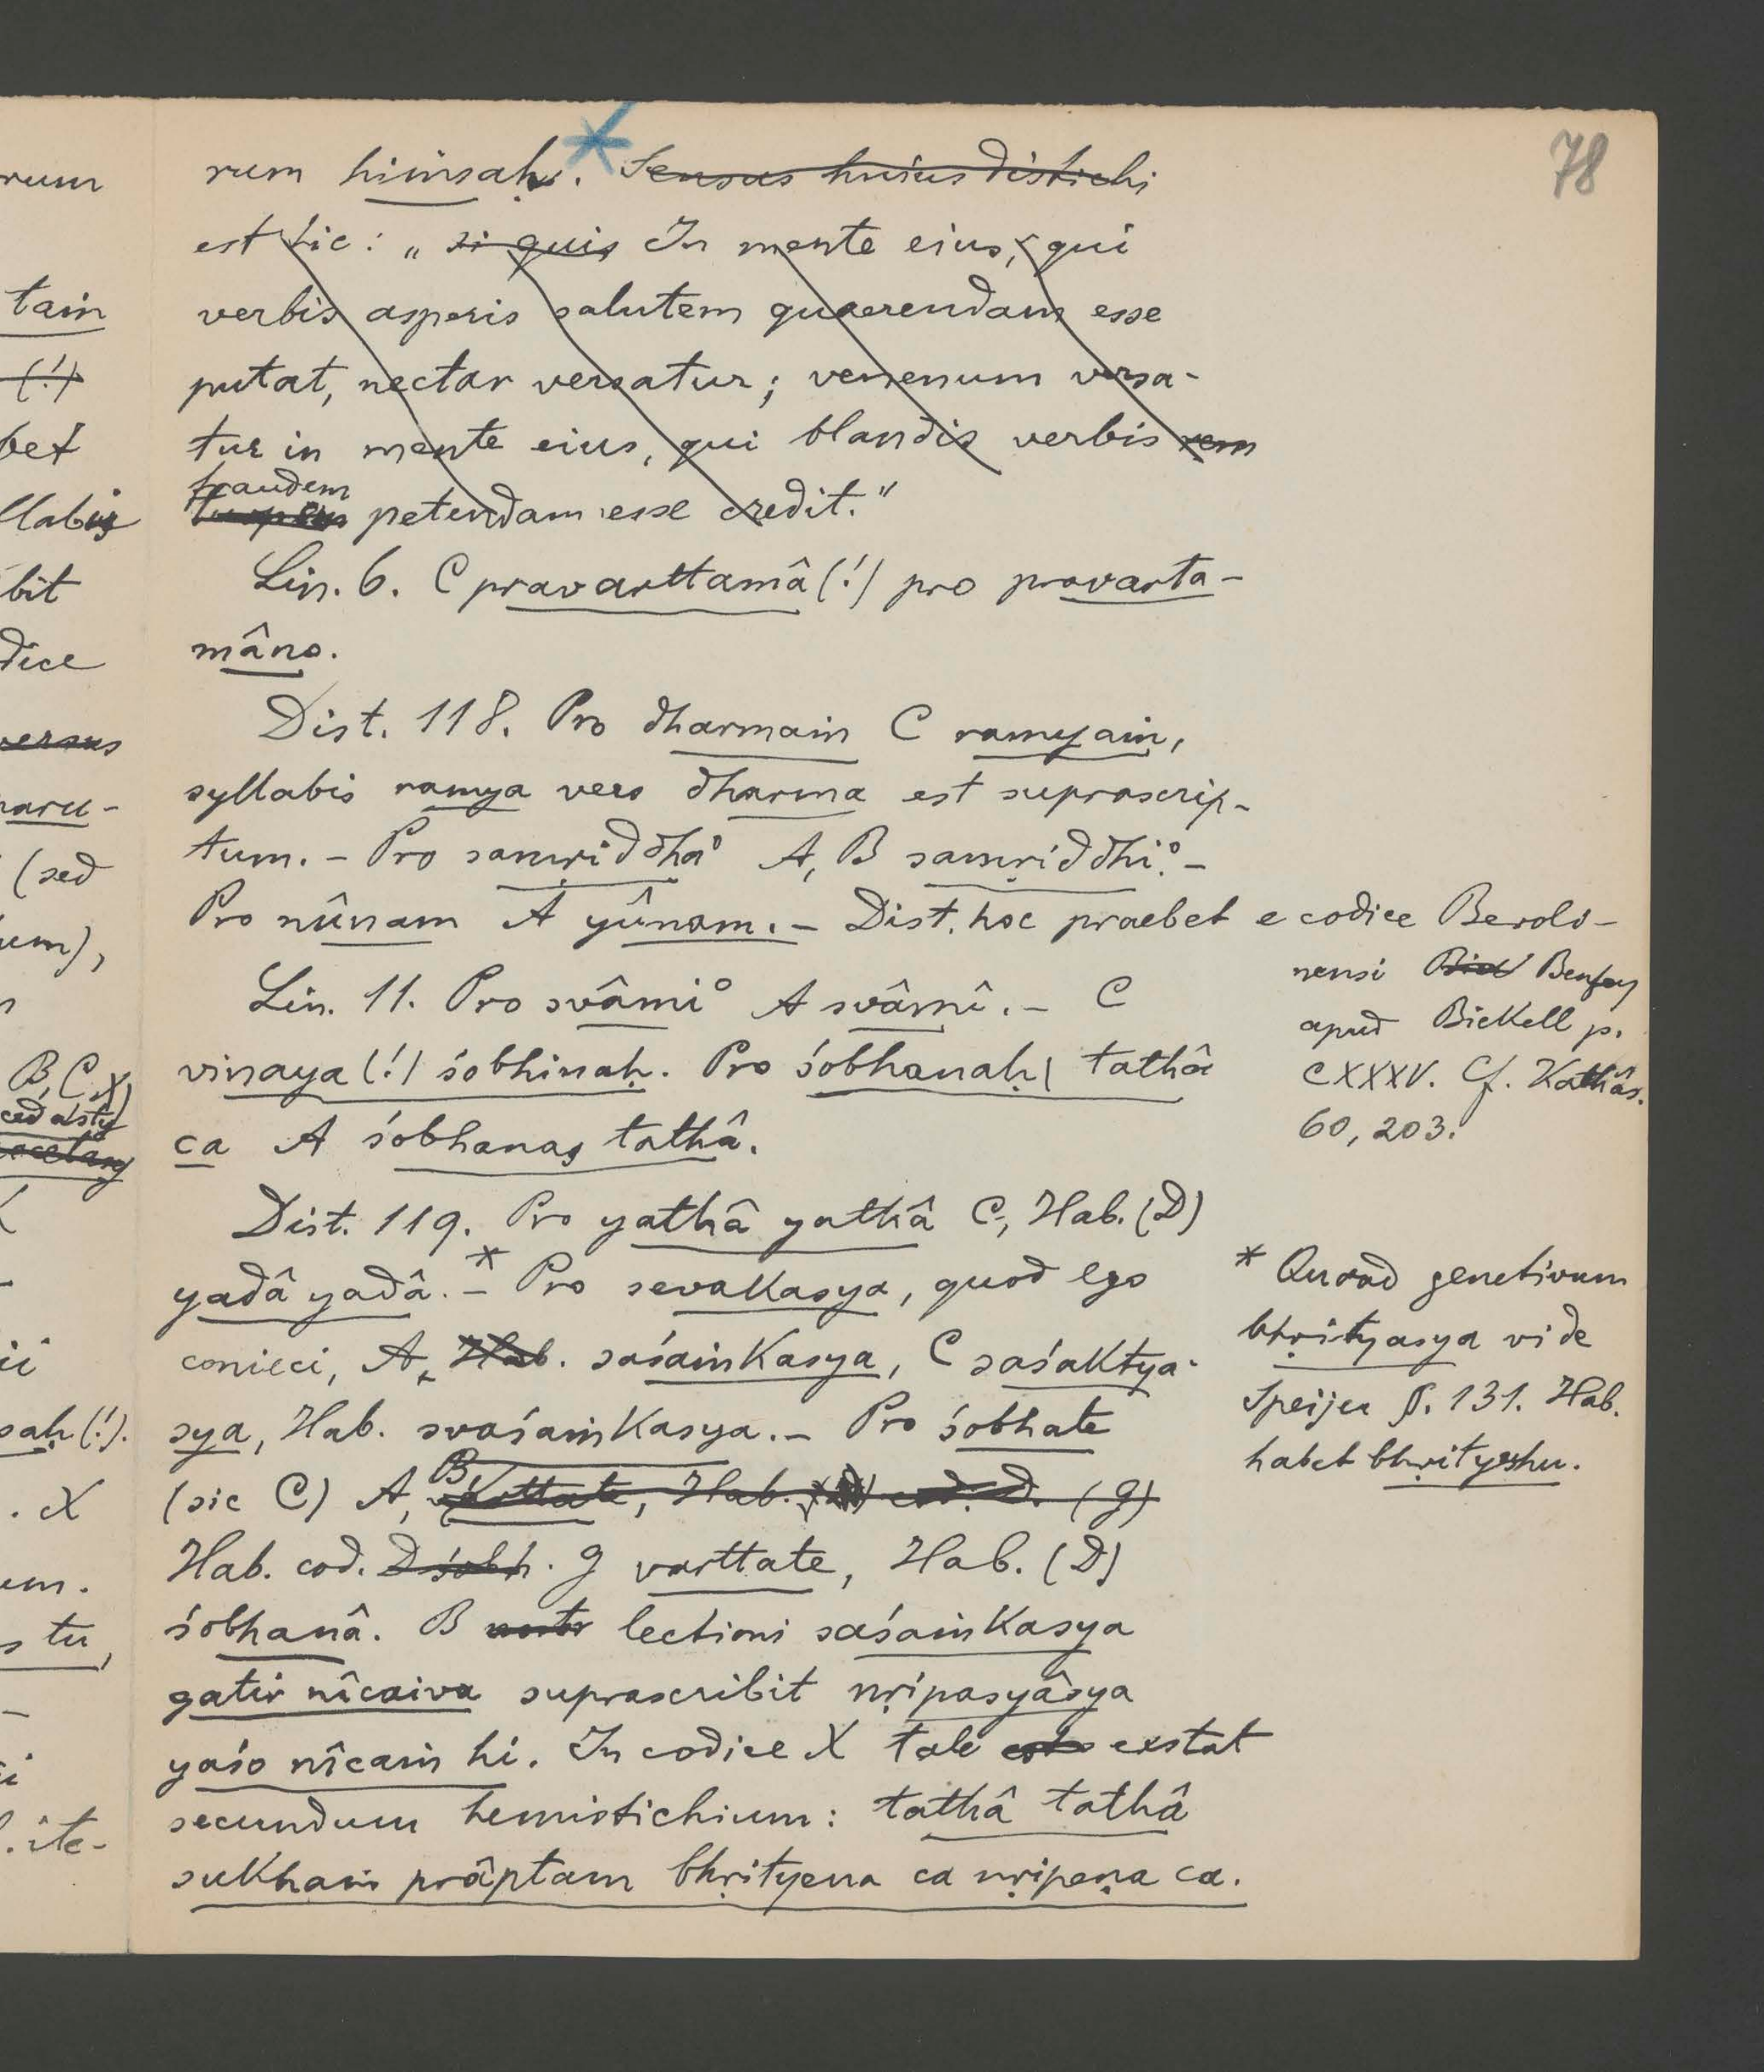 78
rum hiṁsaḥ. Sensus huius distichi
est sic: „ si quis In mente eius, qui
verbis asperis salutem quaerendam esse
putat, nectar versatur; venenum versa-
tur in mente eius, qui blandis verbis rem
fraudem
petendam esse credit."
Lin. 6. C pravarttamâ (!) pro pravarta-
mâno.
Dist. 118. Pro dharmaṁ C ramyaṁ,
syllabis ramya vero dharma est suprascrip-
tum. – Pro samṛiddha° A, B samṛiddhi°. –
Pro nûnam A yûnam. – Dist. hoc praebet e codice Beroli-
nensi Bick Benfey
apud Bickell p.
CXXXV. Cf. Kathâs.
60, 203.
Lin. 11. Pro svâmi° A svâmî. – C
vinaya (!) śobhinaḥ. Pro śobhanaḥ | tathâ
ca A śobhanas tathâ.
Dist. 119. Pro yathâ yathâ C, Hab. (D)
yadâ yadâ. –* Pro sevakasya, quod ego
conieci, A, Hab. saśaṁkasya, C saśaktya-
sya, Hab. svaśaṁkasya. – Pro śobhate
(sic C) A, B varttate, Hab. cod. D. (g)
Hab. cod. D śobh. g varttate, Hab. (D)
śobhanâ. B lectioni saśaṁkasya
gatir nîcaiva suprascribit nṛipasyâsya
yaśo nîcaṁ hi. In codice X tale exstat
secundum hemistichium: tathâ tathâ
sukhaṁ prâptam bhṛityena ca nṛipeṇa ca.
* Quoad genetivum
bhṛityasya vide
Speijer §. 131. Hab.
habet bhṛityeshu.
rum
taṁ
(!)
bet
llabis
bit
dice
versus
naru-
(sed
um),
B, C, X)
saḥ (!).
. X
um.
s tu,
–
. ite-